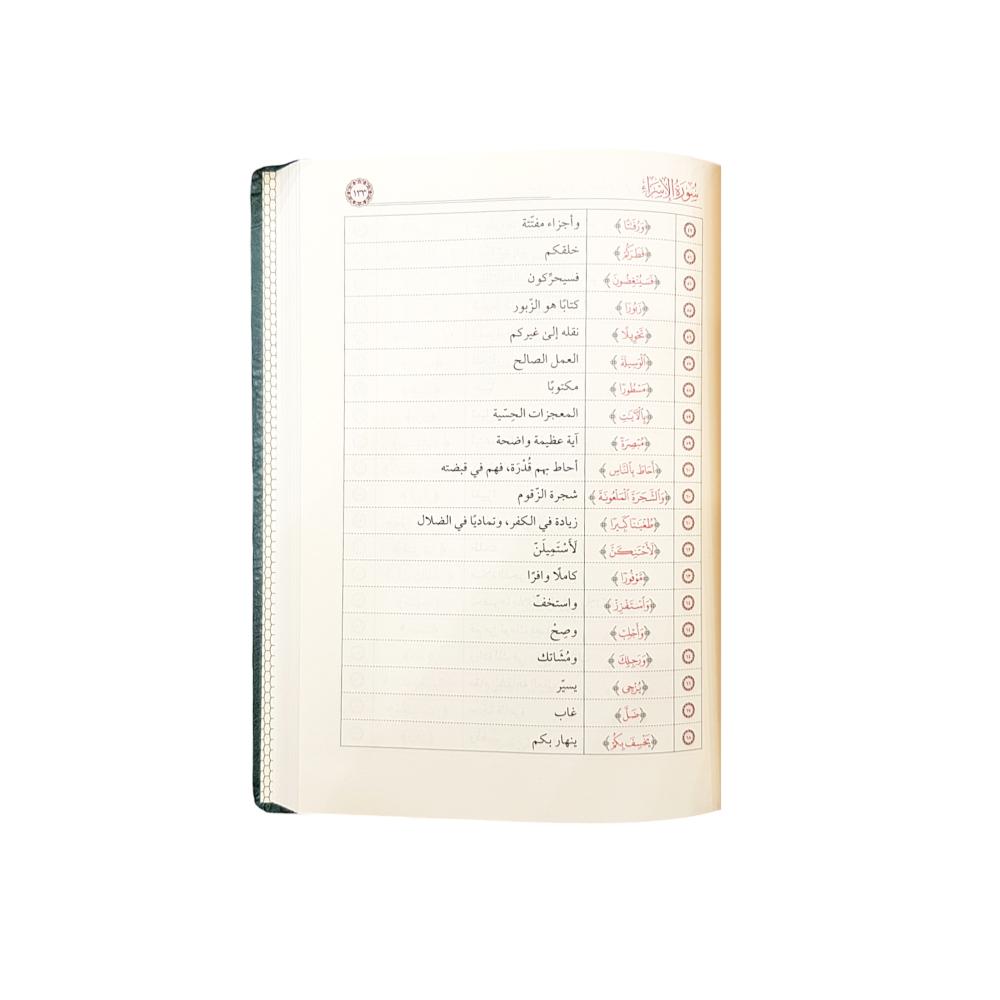 سُورَةُ الإِسْرَاءِ ١٣٣
٤٩ ﴿وَرُفَٰتًا﴾ وأجزاء مفتّتة
٥١ ﴿فَطَرَكُمْ﴾ خلقكم
٥١ ﴿فَسَيُنْغِضُونَ﴾ فسيحرِّكون
٥٥ ﴿زَبُورًا﴾ كتابًا هو الزّبور
٥٦ ﴿تَحْوِيلًا﴾ نقله إلىٰ غيركم
٥٧ ﴿الْوَسِيلَةَ﴾ العمل الصالح
٥٨ ﴿مَسْطُورًا﴾ مكتوبًا
٥٩ ﴿بِالْآيَٰتِ﴾ المعجزات الحِسّية
٥٩ ﴿مُبْصِرَةً﴾ آية عظيمة واضحة
٦٠ ﴿أَحَاطَ بِالنَّاسِ﴾ أحاط بهم قُدْرَة، فهم في قبضته
٦٠ ﴿وَالشَّجَرَةَ الْمَلْعُونَةَ﴾ شجرة الزّقوم
٦٠ ﴿طُغْيَٰنًا كَبِيرًا﴾ زيادة في الكفر، وتماديًا في الضلال
٦٢ ﴿لَأَحْتَنِكَنَّ﴾ لَأَسْتَمِيلَنّ
٦٣ ﴿مَّوْفُورًا﴾ كاملًا وافرًا
٦٤ ﴿وَاسْتَفْزِزْ﴾ واستخفّ
٦٤ ﴿وَأَجْلِبْ﴾ وصِحْ
٦٤ ﴿وَرَجِلِكَ﴾ ومُشَاتك
٦٦ ﴿يُزْجِي﴾ يسيّر
٦٧ ﴿ضَلَّ﴾ غاب
٦٨ ﴿يَخْسِفَ بِكُمْ﴾ ينهار بكم